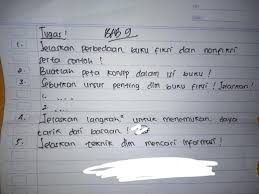 Tugas! BAB 9
1. Jelaskan perbedaan buku fiksi dan nonfiksi
serta contoh!
2. Buatlah peta konsep dalam isi buku!
3. Sebutkan unsur penting dlm buku fiksi! Jelaskan!
1. ....
2. ....
4. Jelaskan langkah² untuk menemukan daya
tarik dari bacaan!
5. Jelaskan teknik dlm mencari informasi!